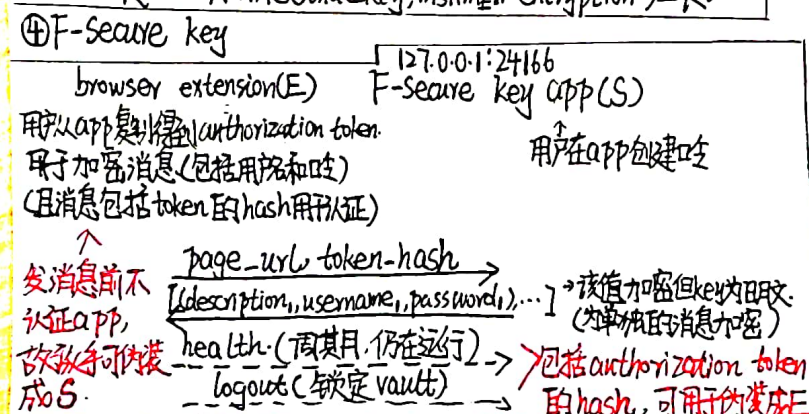 ④F-Secure key
127.0.0.1:24166
browser extension(E)
F-Secure key app(S)
用户从app复制得到authorization token.
用户在app创建口令
用于加密消息(包括用户名和口令)
(且消息包括token的hash用于认证)
page_url, token-hash
发消息前不
认证app,
故敌手可伪装
成S.
[(description₁,username₁,password₁),...]
该值加密但key为明文.
(为单独的消息加密)
health.(周期,仍在运行)
logout(锁定vault)
包括authorization token
的hash,可用于伪装成E